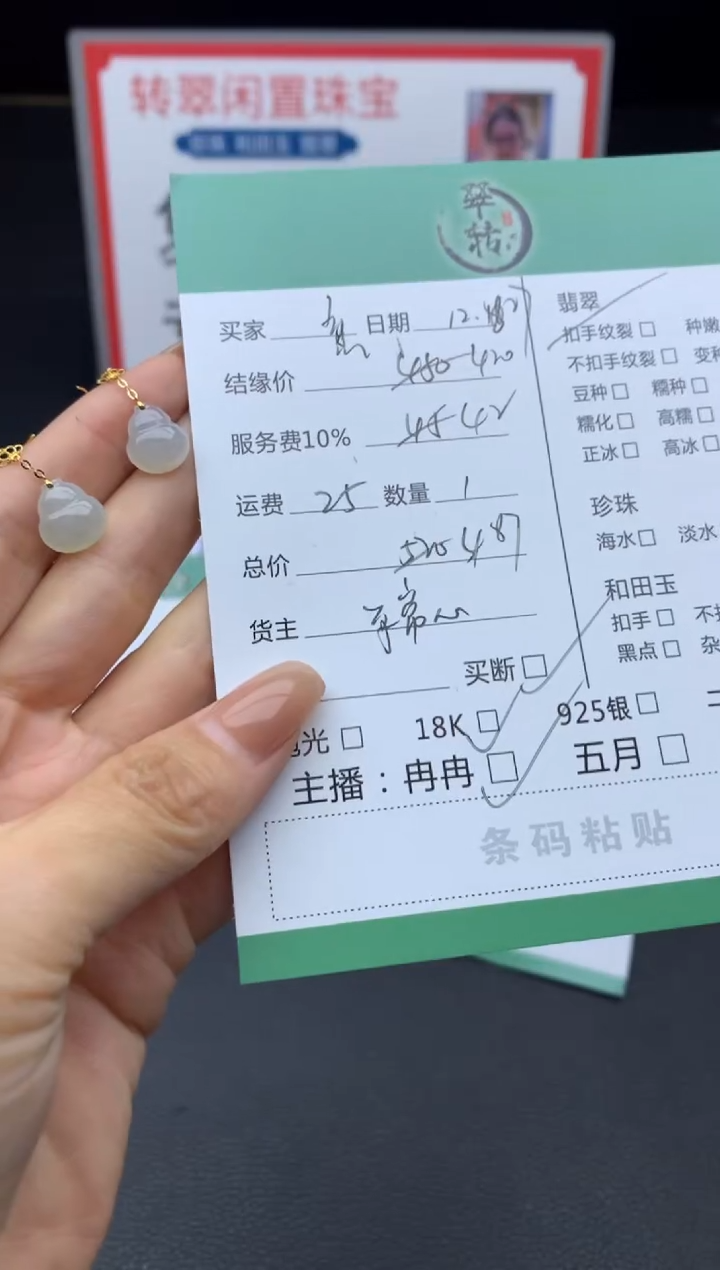 转翠闲置珠宝
翠
转
买家 日期 12.18
结缘价 480 420
服务费10% 48 42
运费 25 数量 1
总价 487
货主 平常心
买断□
光□ 18K□ 925银□
主播：冉冉□ 五月□
条码粘贴
翡翠
扣手纹裂□ 种嫩
不扣手纹裂□ 变种
豆种□ 糯种□
糯化□ 高糯□
正冰□ 高冰□
珍珠
海水□ 淡水
和田玉
扣手□
黑点□ 杂